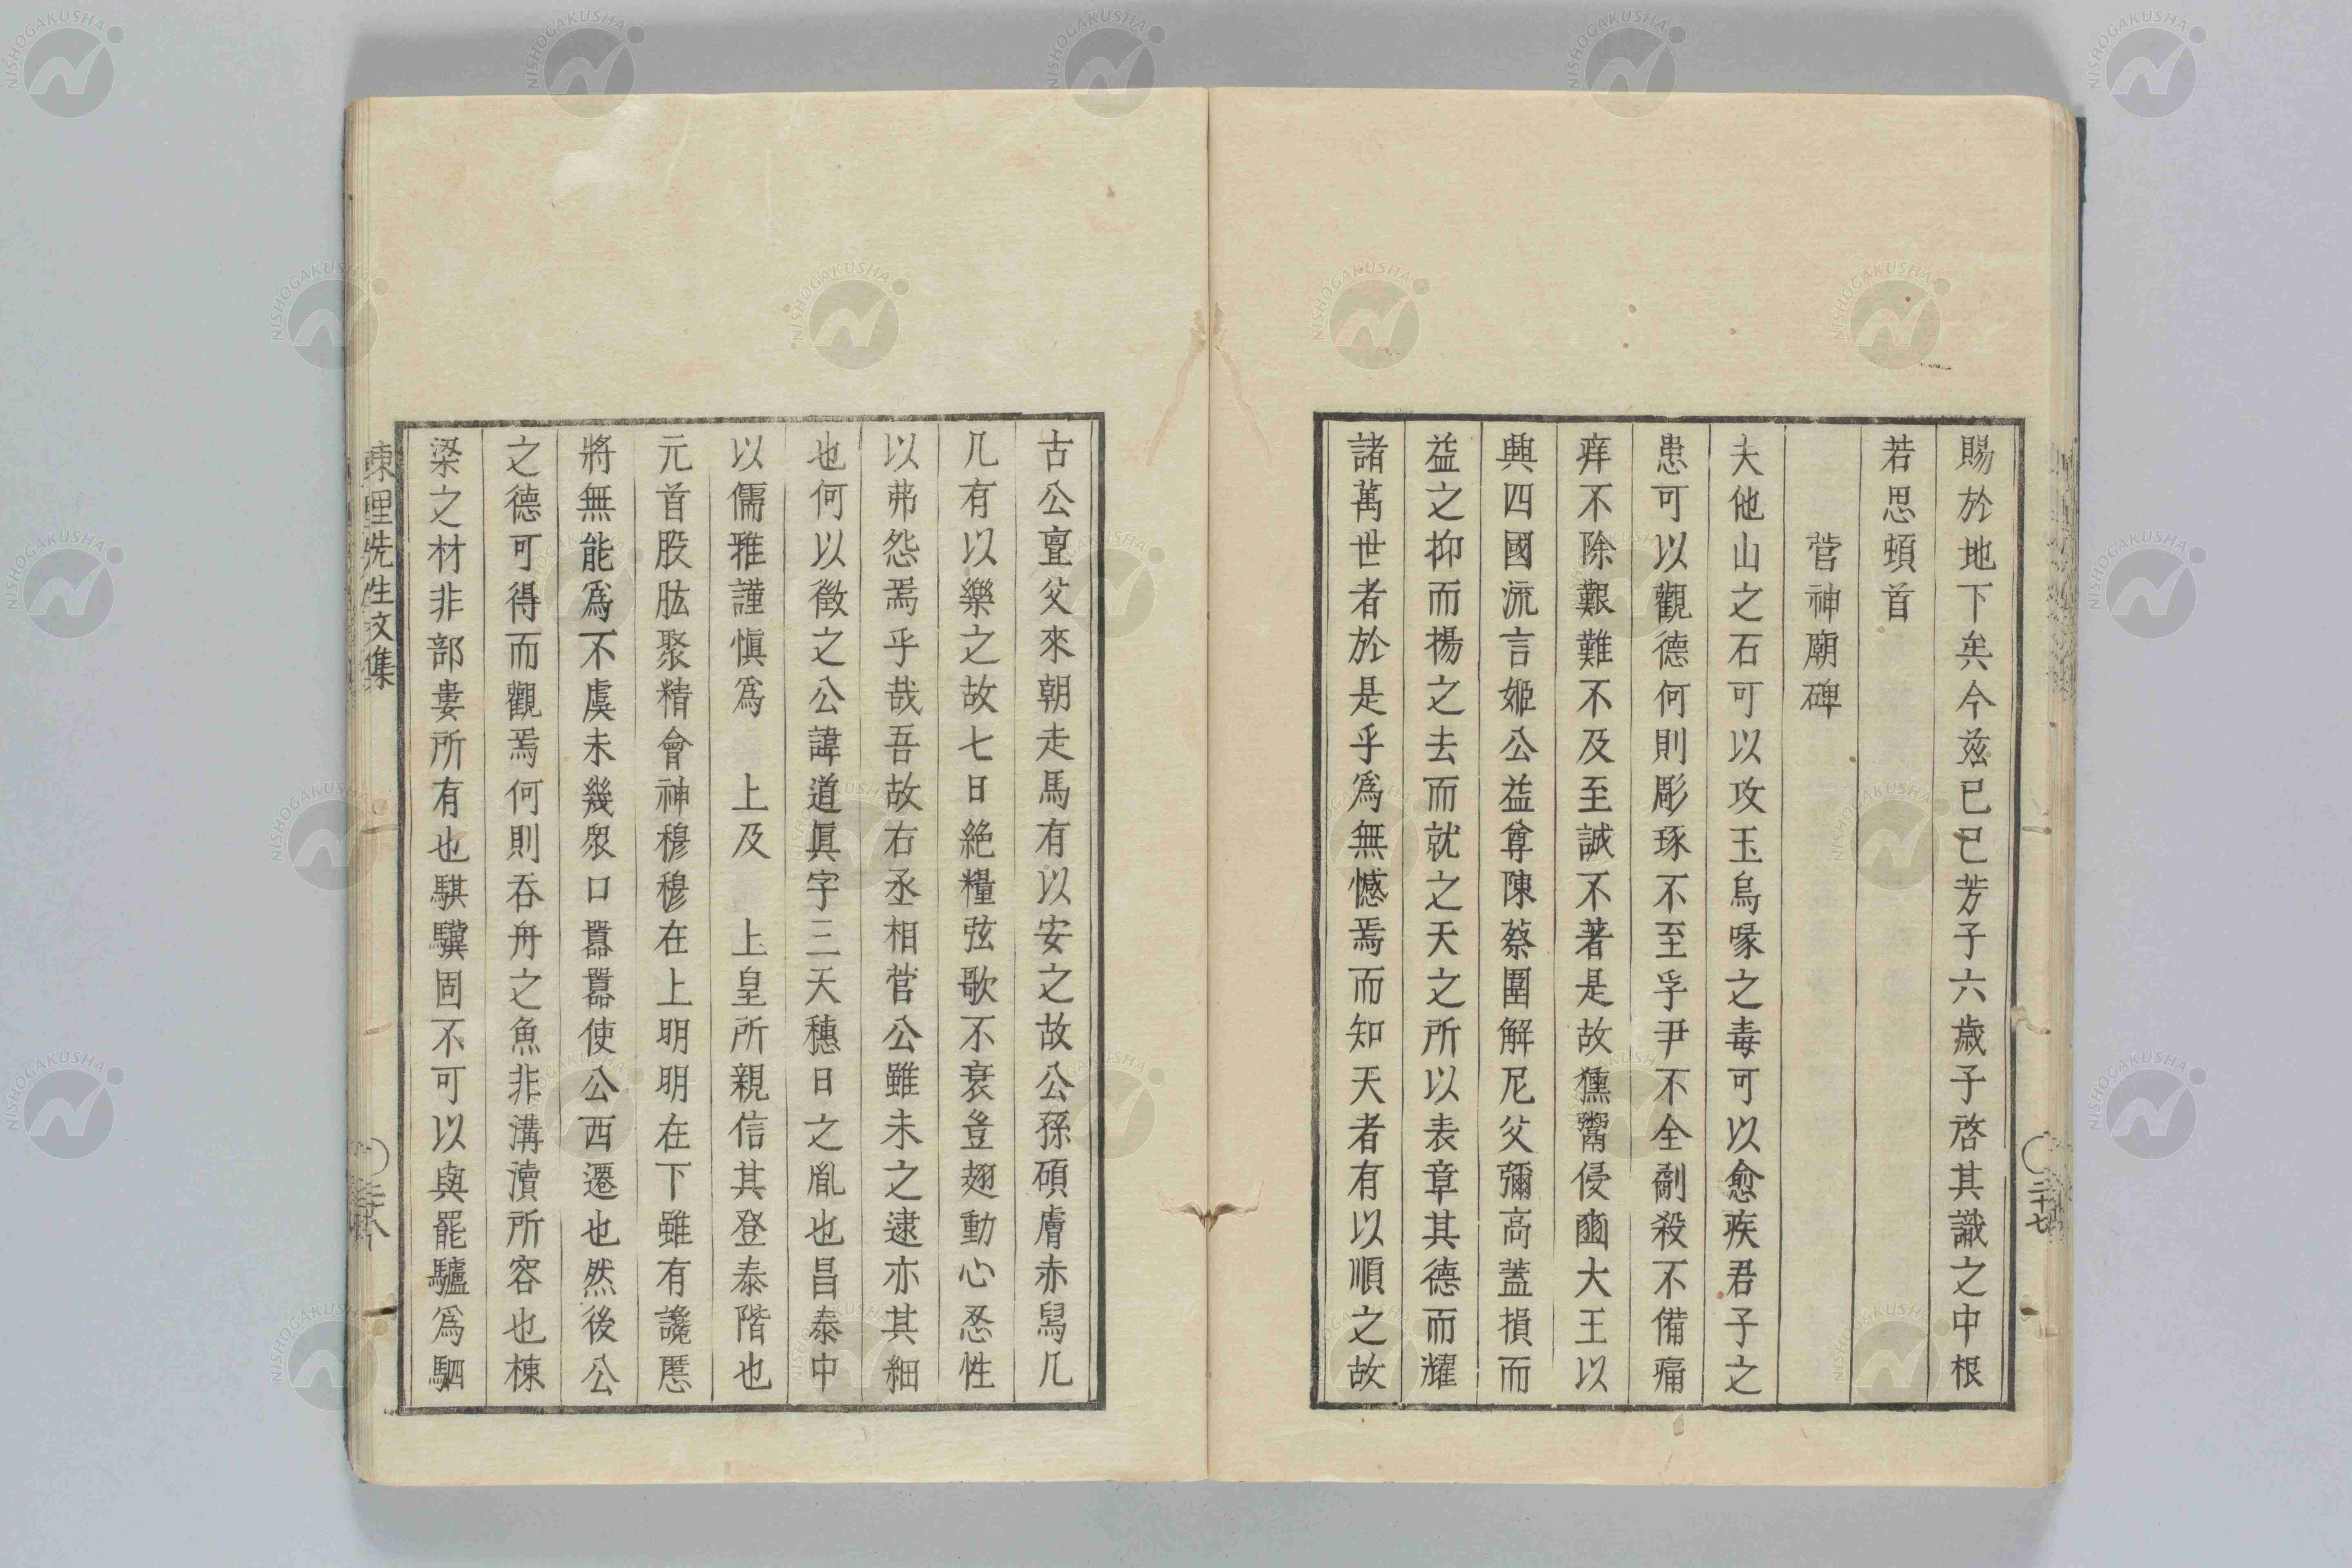 賜於地下矣今茲已巳芳子六歲子啓其識之中根
若思頓首
菅神廟碑
夫他山之石可以攻玉烏喙之毒可以愈疾君子之
患可以觀德何則彫琢不至孚尹不全劀殺不備痛
痒不除艱難不及至誠不著是故獯鬻侵豳大王以
興四國流言姬公益尊陳蔡圍解尼父彌高蓋損而
益之抑而揚之去而就之天之所以表章其德而耀
諸萬世者於是乎爲無憾焉而知天者有以順之故
二十七
古公亶父來朝走馬有以安之故公孫碩膚赤舄几
几有以樂之故七日絶糧弦歌不衰豈翅動心忍性
以弗怨焉乎哉吾故右丞相菅公雖未之逮亦其細
也何以徵之公諱道眞字三天穗日之胤也昌泰中
以儒雅謹愼爲 上及 上皇所親信其登泰階也
元首股肱聚精會神穆穆在上明明在下雖有讒慝
將無能爲不虞未幾衆口囂囂使公西遷也然後公
之德可得而觀焉何則吞舟之魚非溝瀆所容也棟
梁之材非部婁所有也騏驥固不可以與罷驢爲駟
東里先生文集
NISHOGAKUSHA